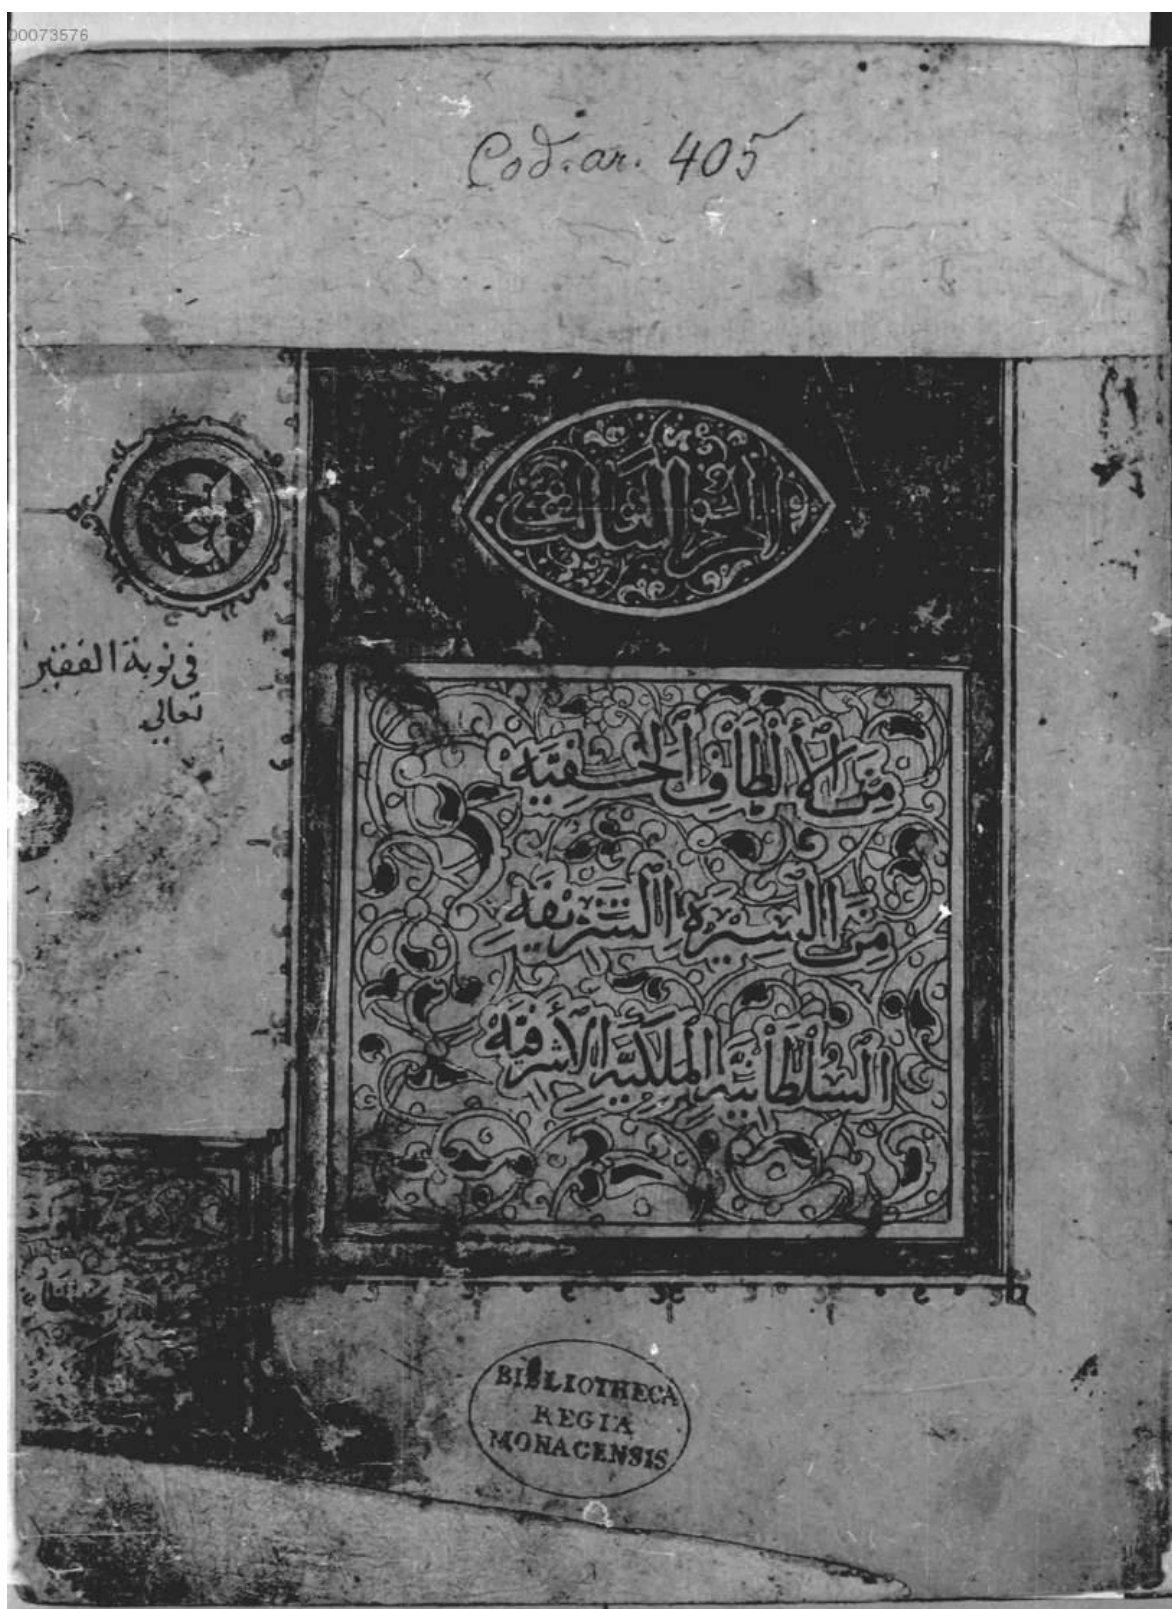 00073576
Cod. ar. 405
الجزء الثالث
في نوبة الفقير
تعالى
من الألطاف الخفية
من السيرة الشريفة
السلطانية الملكية الأشرفية
BIBLIOTHECA
REGIA
MONACENSIS